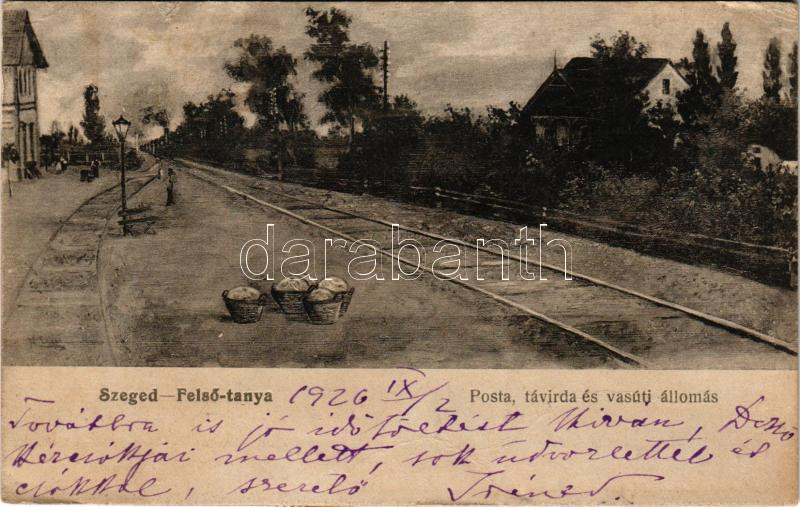 darabanth
Szeged—Felső-tanya 1926 IX/2 Posta, távirda és vasúti állomás
Továbbra is jó időtöltést kíván, Dezső
mellett, sok üdvözlettel és
szerető Iréned.